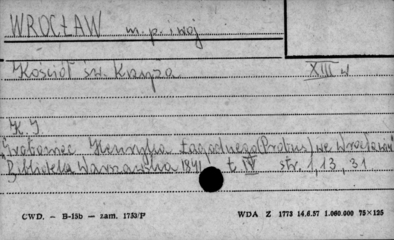 WROCŁAW m. p. i woj
Kościół św. Krzyża XIII w
K. J.
Grobowiec Henryka Łagodnego (Probus) we Wrocławiu
Biblioteka Warszawska 1841 t IV str. 1, 13, 31
CWD. — B-15b — zam. 1753/P WDA Z 1773 14.6.57 1.060.000 75×125